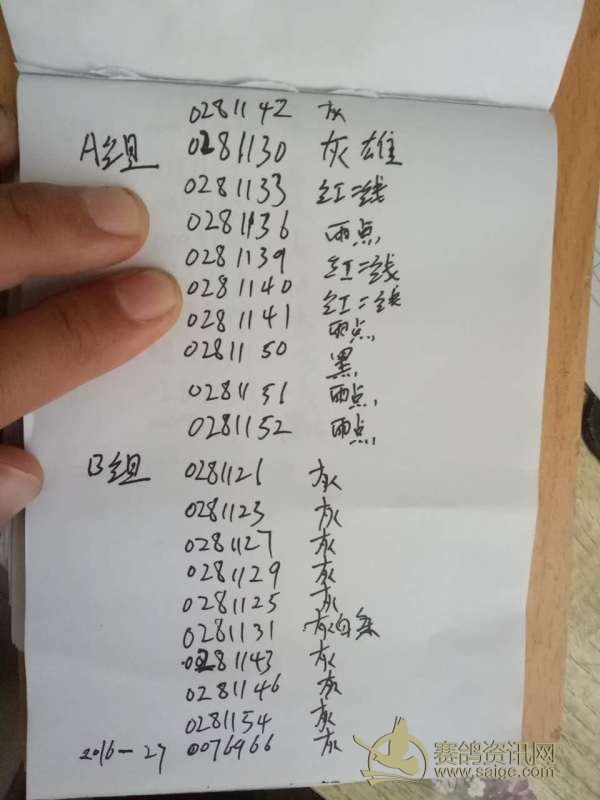 0281142 灰
A组 0281130 灰雄
0281133 红二线
0281136 雨点
0281139 红二线
0281140 红二线
0281141 雨点
0281150 黑
0281151 雨点
0281152 雨点
B组 0281121 灰
0281123 灰
0281127 灰
0281129 灰
0281125 灰
0281131 灰白条
0281143 灰
0281146 灰
0281154 灰
2016-27 0076966 灰
赛鸽资讯网
www.saige.com